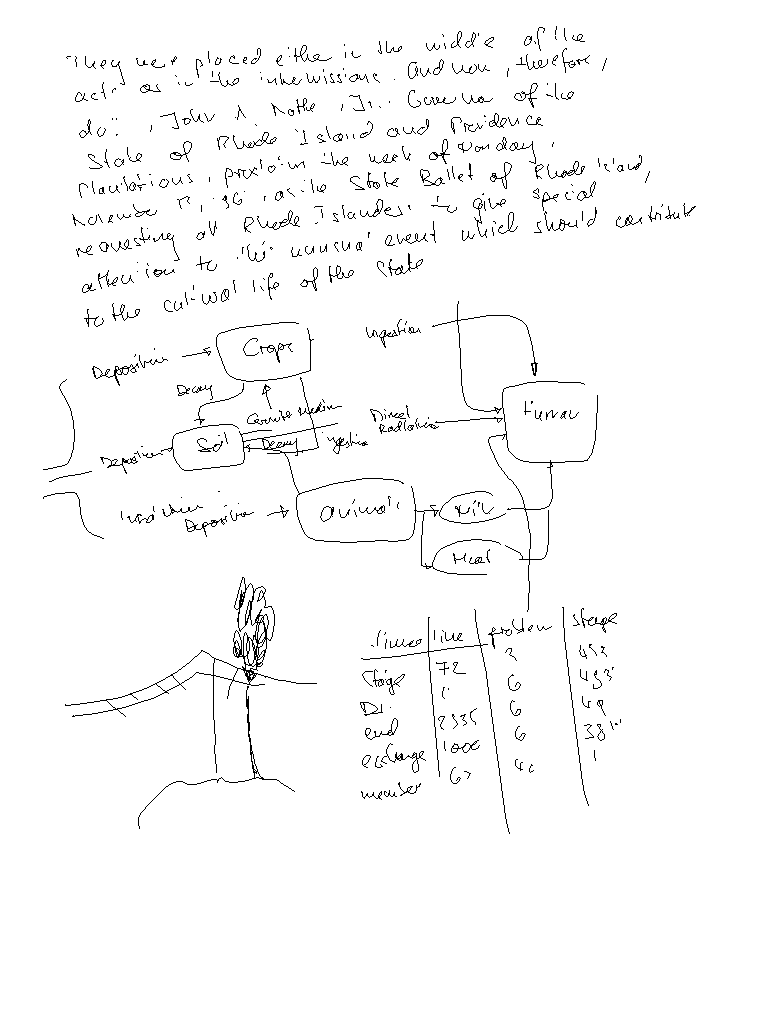 They were placed either in the middle of the
acts or in the intermissions. And now, therefore,
do I, John A. Notte, Jr., Governor of the
State of Rhode Island and Providence
Plantations, proclaim the week of Monday,
November as the State Ballet of Rhode Island,
requesting all Rhode Islanders to give special
attention to this unusual event which should contribute
to the cultural life of the State
Deposition
Crops
Ingestion
Decay
Human
Deposition
Soil
Decay
Direct
Radiation
Deposition
animals
Milk
Meat
line
problem
stage
Stage
72
3
453
6
end
2335
6
49
exchange
1000
6
member